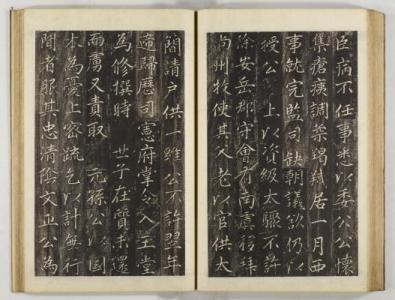 臣病不任事悉以委公公懷
集瘡痍調居一月西
事就完監司缺朝議欲仍以
授公 上以資級太驟不許
除安岳郡守會有南虞移拜
尚州牧使其父老以官供太
簡請户供一雞公不許翌年
遞歸歷司憲府掌令入玉堂
為修撰時 世子在質未還
而虜又責取 元孫公以國
本為憂上密疏乞以計無行
聞者服其忠清陰文正公為